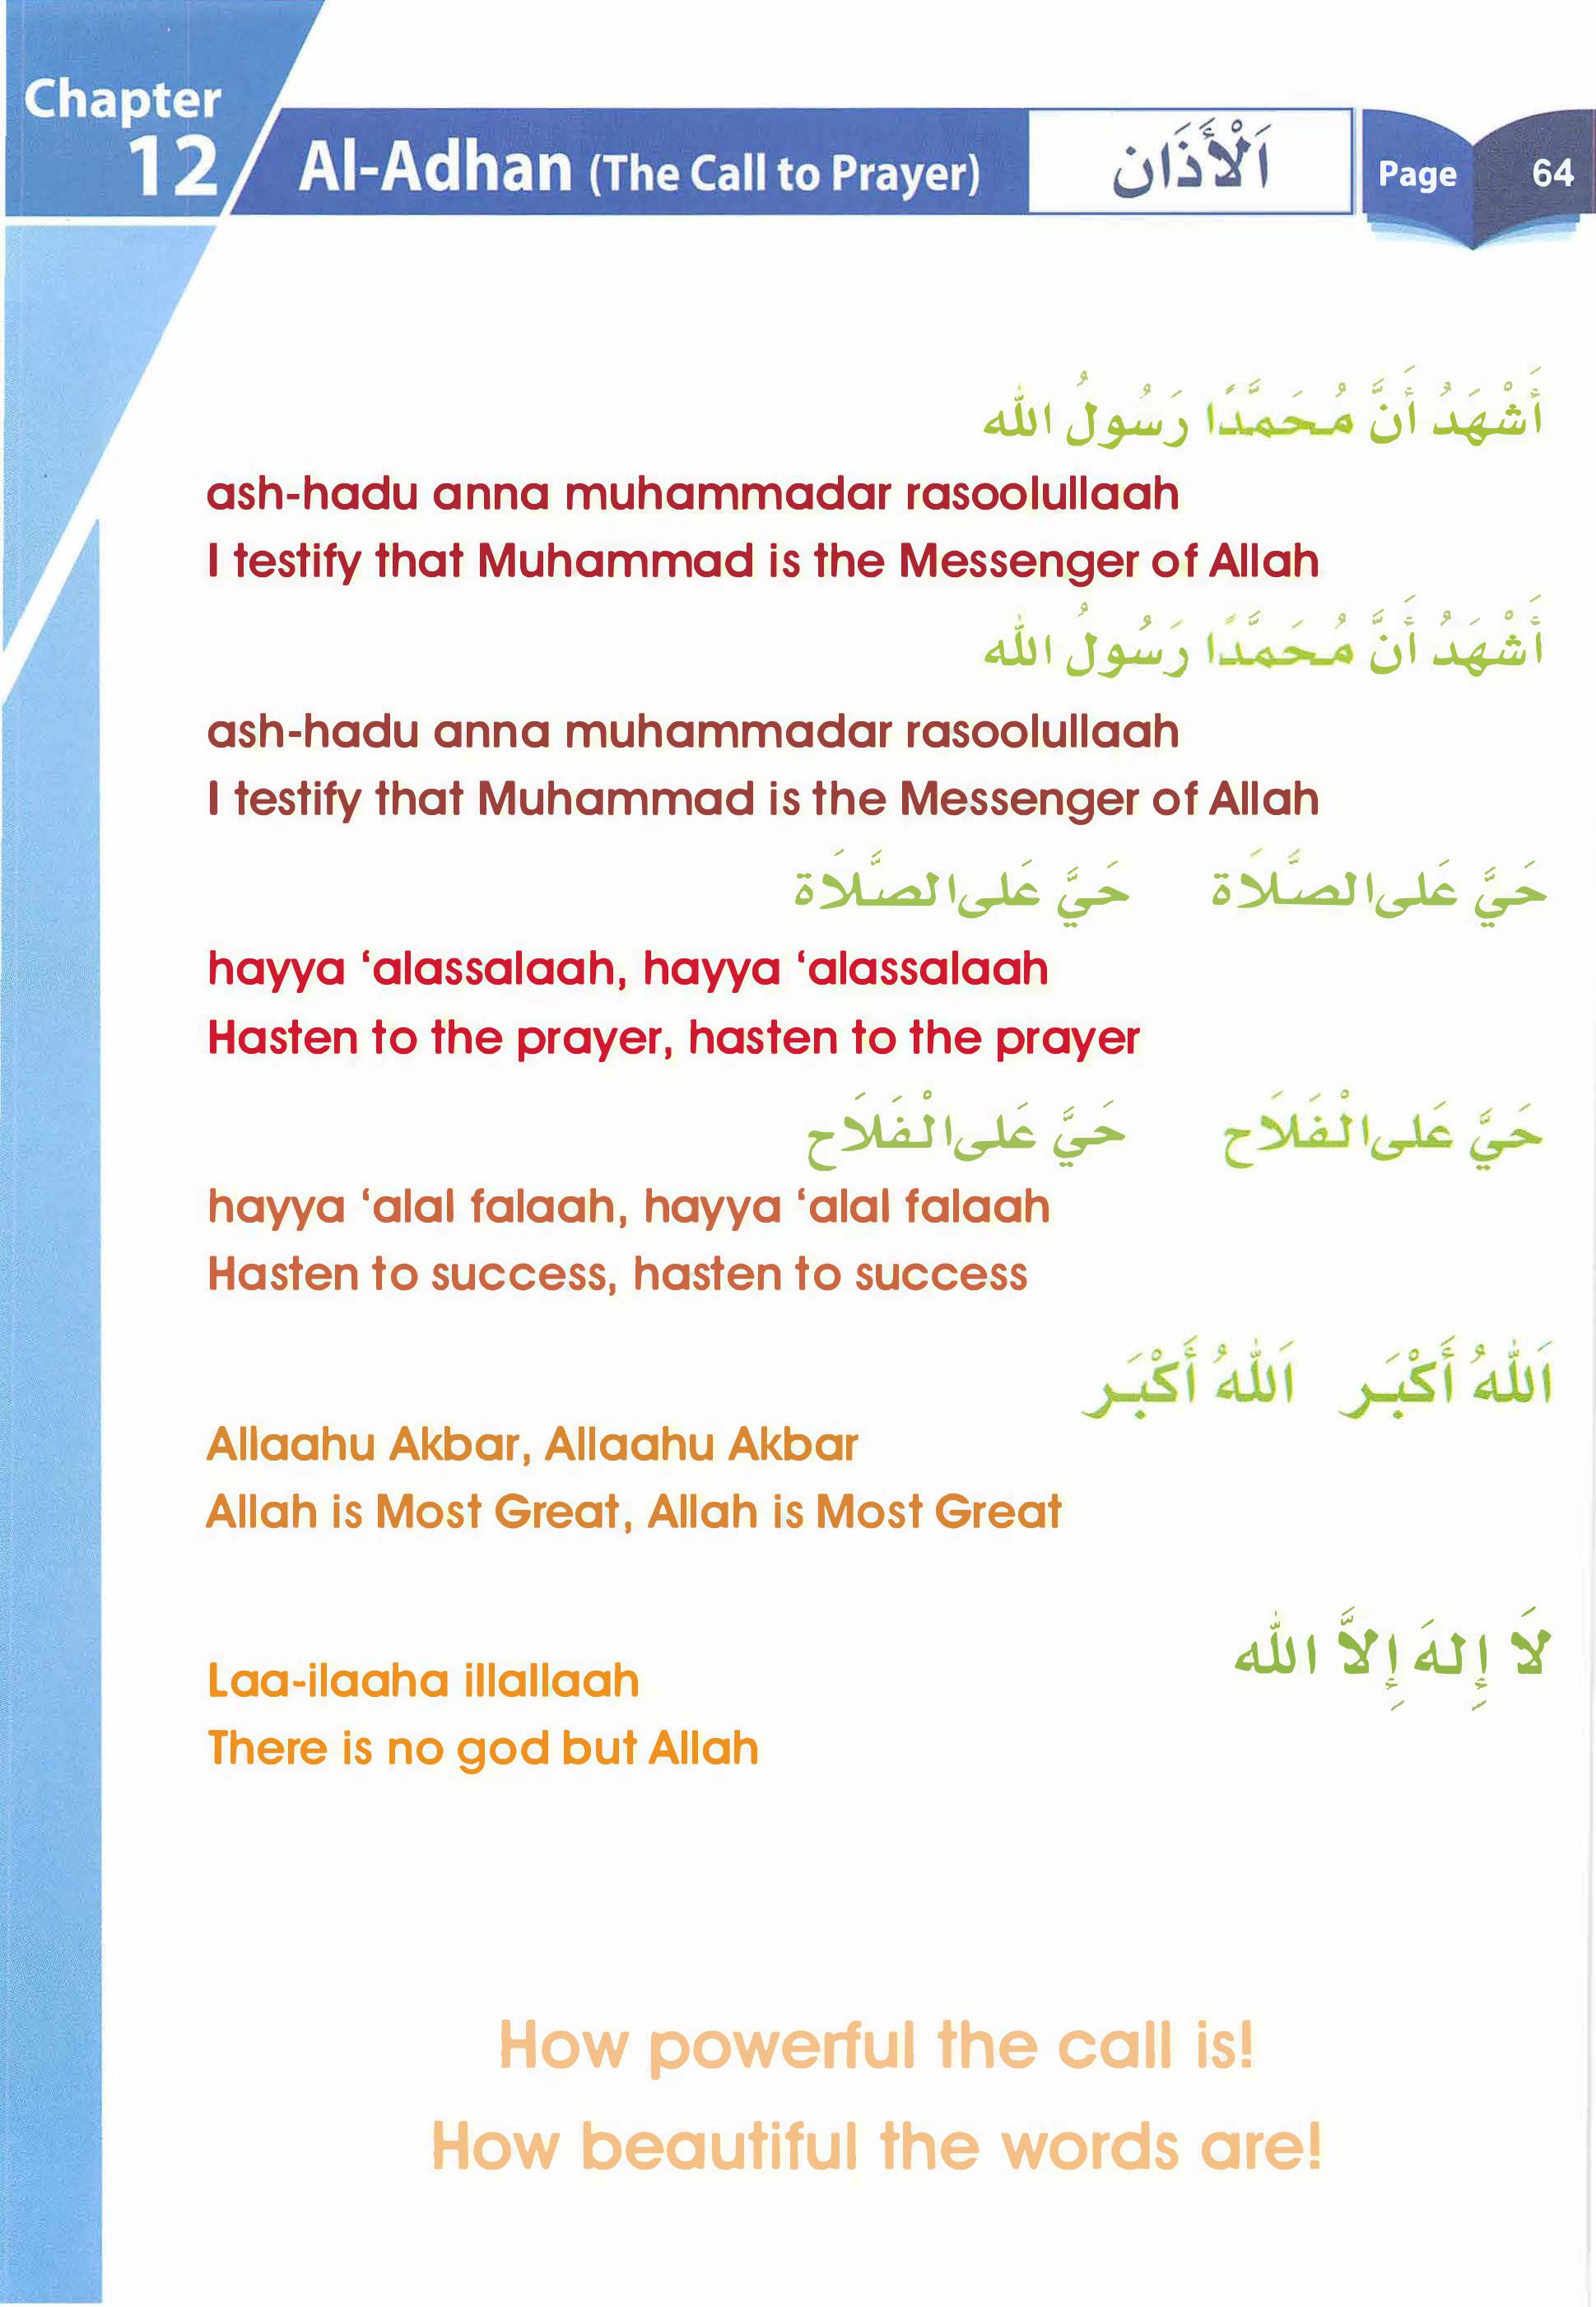 Chapter
12
Al-Adhan (The Call to Prayer)
اَلْأَذَان
Page 64
أَشْهَدُ أَنَّ مُحَمَّدًا رَسُولُ الله
ash-hadu anna muhammadar rasoolullaah
I testify that Muhammad is the Messenger of Allah
أَشْهَدُ أَنَّ مُحَمَّدًا رَسُولُ الله
ash-hadu anna muhammadar rasoolullaah
I testify that Muhammad is the Messenger of Allah
حَيَّ عَلى الصَّلاَة حَيَّ عَلى الصَّلاَة
hayya ‘alassalaah, hayya ‘alassalaah
Hasten to the prayer, hasten to the prayer
حَيَّ عَلى الْفَلاَح حَيَّ عَلى الْفَلاَح
hayya ‘alal falaah, hayya ‘alal falaah
Hasten to success, hasten to success
اَللهُ أَكْبَر اَللهُ أَكْبَر
Allaahu Akbar, Allaahu Akbar
Allah is Most Great, Allah is Most Great
لاَ إِلهَ إِلاَّ الله
Laa-ilaaha illallaah
There is no god but Allah
How powerful the call is!
How beautiful the words are!